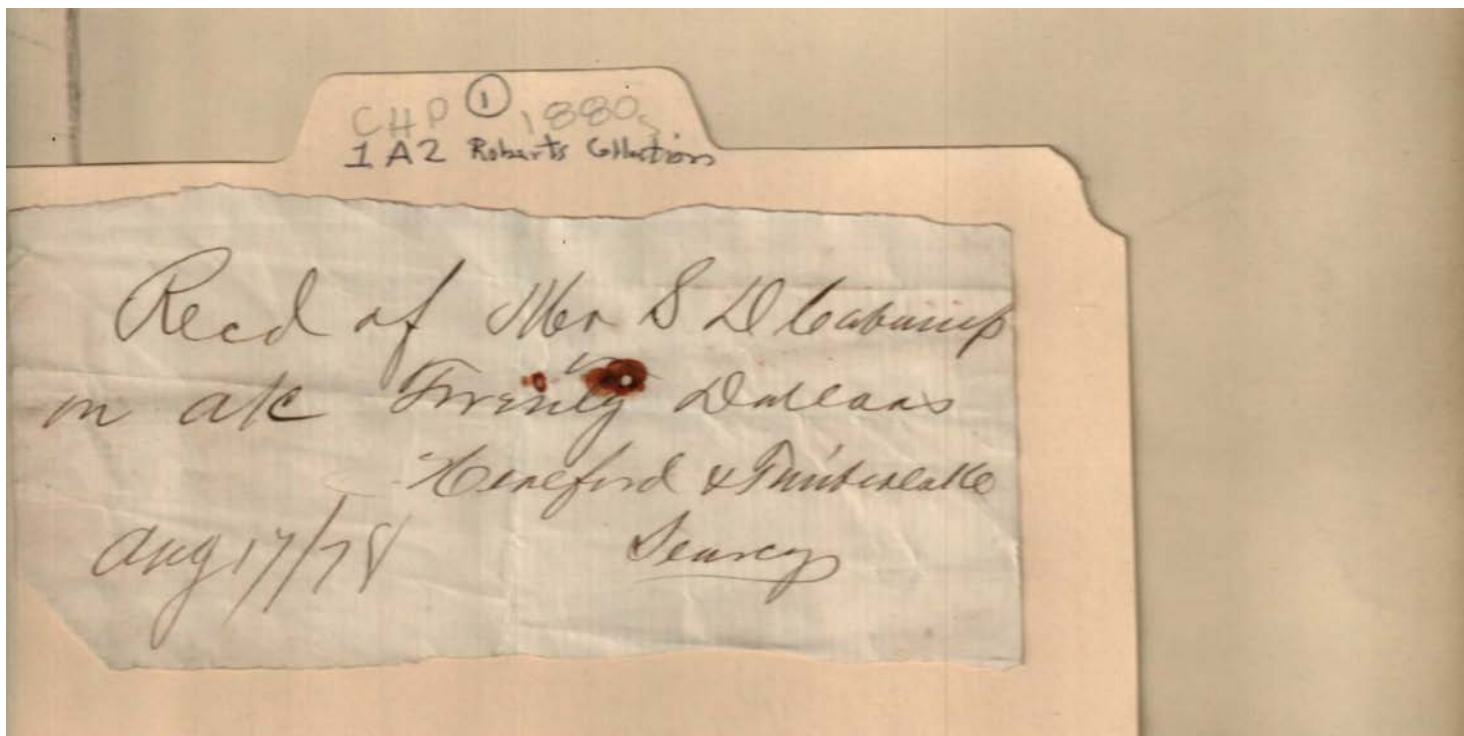 CHP ① 1880s
1A2 Roberts Collection
Recd of Mr S D
on a/c Twenty Dollars
Hereford & Timberlake
Aug 17/78 Searcy